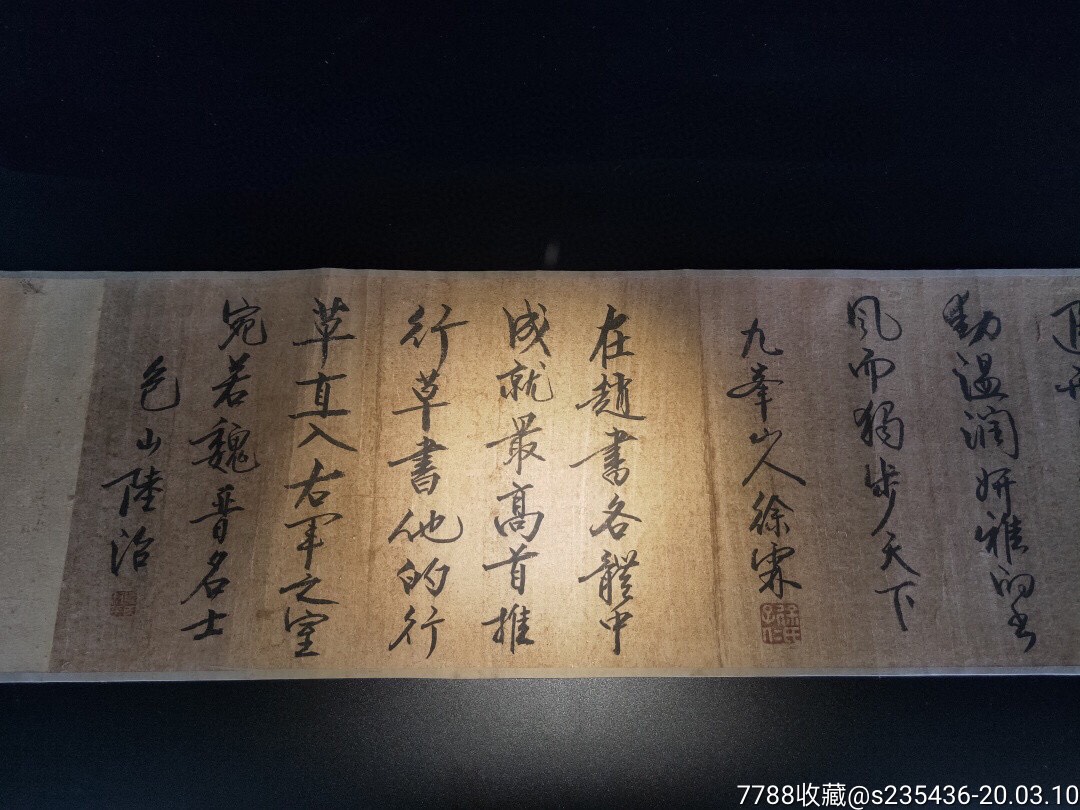 勁温潤妍雅的書
風而獨步天下
九峯山人徐霖
在趙書各體中
成就最高首推
行草書他的行
草直入右軍之室
宛若魏晉名士
包山陸治
7788收藏@s235436-20.03.10